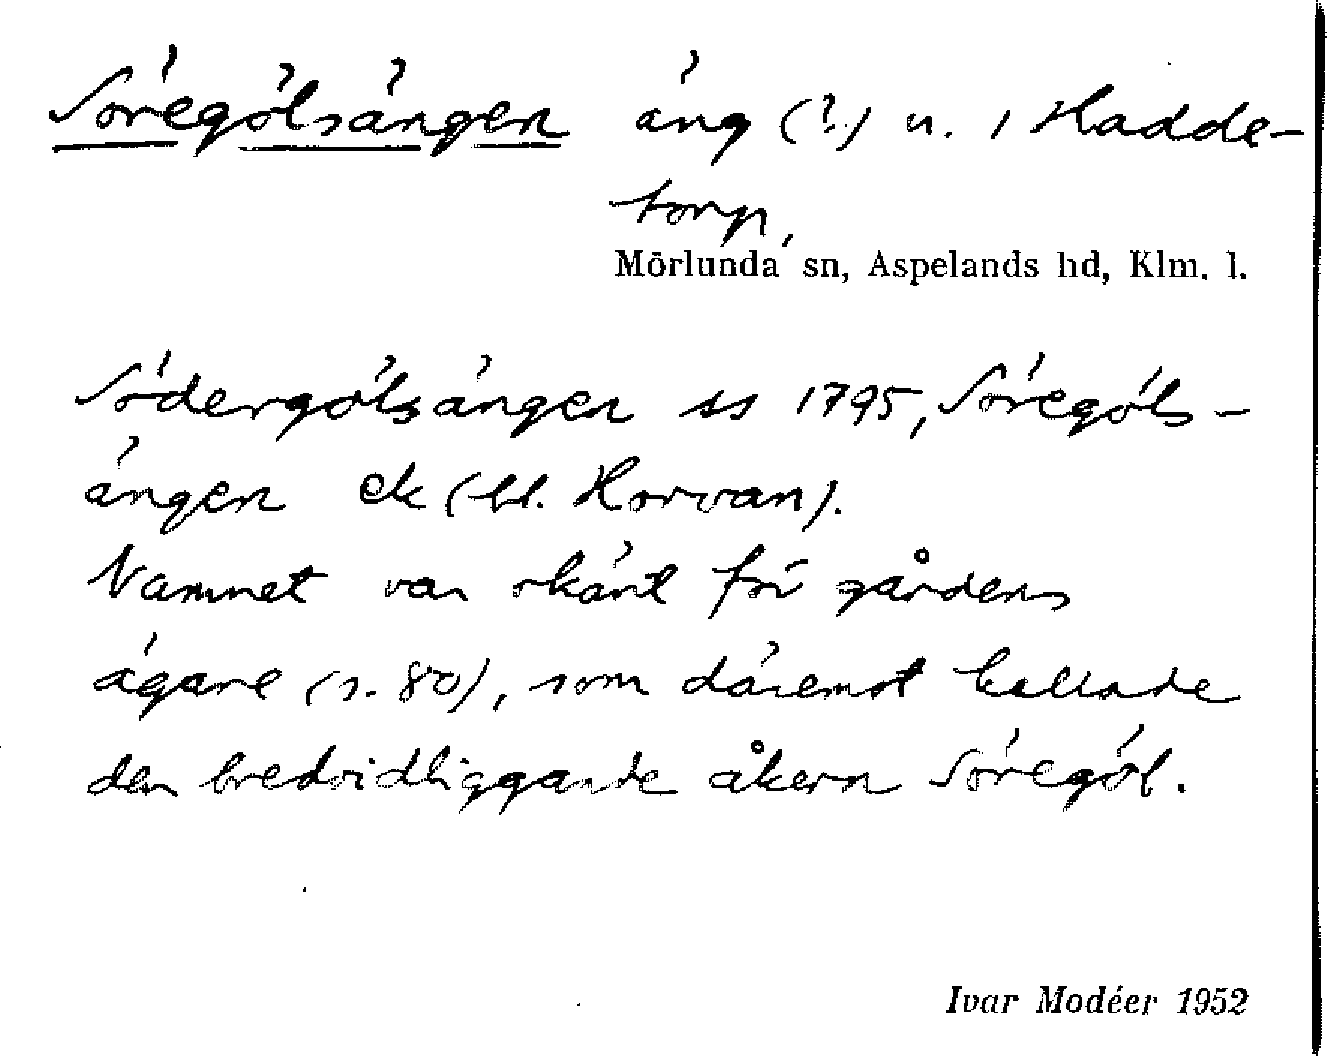 Söregölsängen äng (?) u. i Hadde-
torp,
Mörlunda sn, Aspelands hd, Klm. l.
Södergölsängen ss 1795, Söregöls-
ängen ek (bl. Horvan).
Namnet var okänt för gårdens
ägare (s. 80), som däremot kallade
den bredvidliggande åkern Söregöl.
Ivar Modéer 1952